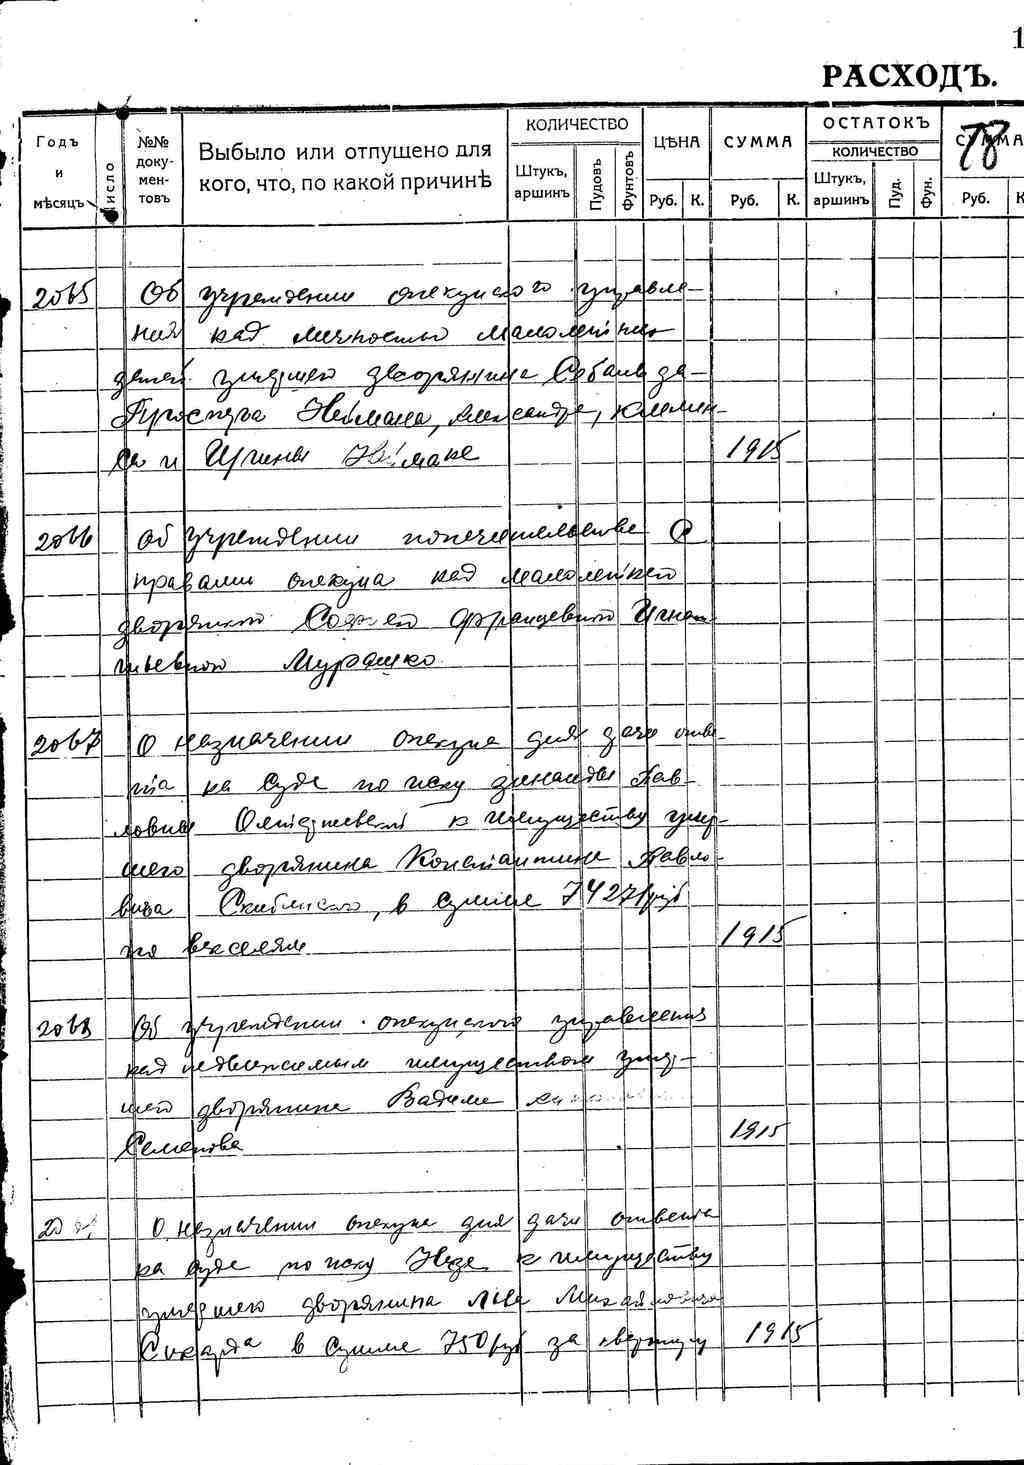 1
РАСХОДЪ.
Годъ и мѣсяцъ
Число
№№ докумен-товъ
Выбыло или отпущено для кого, что, по какой причинѣ
КОЛИЧЕСТВО
Штукъ, аршинъ
Пудовъ
Фунтовъ
ЦѢНА
Руб. К.
СУММА
Руб. К.
ОСТАТОКЪ
КОЛИЧЕСТВО
Штукъ, аршинъ
Пуд.
Фун.
СУММА
Руб. К
78
2065 Об учреждении опекунского управле-
ния над личностью малолетних
детей умершего дворянина
Неймана, Александра,
и Ирины Неймана 1915
2066 Об учреждении попечительства с
правами опекуна над малолетней
дворянкой Софией Францевной Игна-
тьевной Мурашко
2067 О назначении опекуна для дачи отве-
та на суде по иску Зинаиды Пав-
ловны к имуществу умер-
шего дворянина Константина Павло-
вича в сумме 74271 руб
по векселям 1915
2068 Об учреждении опекунского управления
над недвижимым имуществом умер-
шего дворянина Вадима
Семенова 1915
О назначении опекуна для дачи ответа
на суде по иску к имуществу
умершего дворянина Льва Михайловича
Сикарда в сумме 750 руб за квартиру 1915